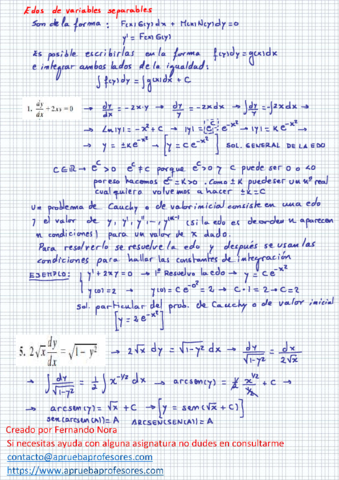 Edos de variables separables
Son de la forma: F(x)G(y)dx + M(x)N(y)dy = 0
y' = F(x)G(y)
Es posible escribirlas en la forma f(y)dy = g(x)dx
e integrar ambos lados de la igualdad:
∫f(y)dy = ∫g(x)dx + C
1. dy/dx + 2xy = 0 → dy/dx = -2x·y → dy/y = -2xdx → ∫dy/y = -∫2xdx →
→ Ln|y| = -x² + C → |y| = e^C · e^(-x²) → |y| = K e^(-x²) →
→ y = ±K e^(-x²) → [y = C e^(-x²)] SOL. GENERAL DE LA EDO
C∈ℝ → e^C > 0 e^C ≠ C porque e^C > 0 y C puede ser 0 o < 0
por eso hacemos e^C = K > 0, como ±K puede ser un nº real
cualquiera volvemos a hacer ±K = C
Un problema de Cauchy o de valor inicial consiste en una edo
y el valor de y, y', y'', ..., y^(n-1) (si la edo es de orden n aparecen
n condiciones) para un valor de x dado.
Para resolverlo se resuelve la edo y después se usan las
condiciones para hallar las constantes de integración
EJEMPLO: { y' + 2xy = 0 → 1º Resuelvo la edo → y = C e^(-x²)
y(0) = 2 → y(0) = C e^(-0²) = 2 → C·1 = 2 → C = 2
Sol. particular del prob. de Cauchy o de valor inicial
[y = 2e^(-x²)]
5. 2√x dy/dx = √(1-y²) → 2√x dy = √(1-y²) dx → dy/√(1-y²) = dx/2√x
→ ∫dy/√(1-y²) = 1/2 ∫x^(-1/2) dx → arcsen(y) = 1/2 x^(1/2)/(1/2) + C →
→ arcsen(y) = √x + C → [y = sen(√x + C)]
sen(arcsen(A)) = A ARCSEN(SEN(A)) = A
Creado por Fernando Nora
Si necesitas ayuda con alguna asignatura no dudes en consultarme
contacto@apruebaprofesores.com
https://www.apruebaprofesores.com